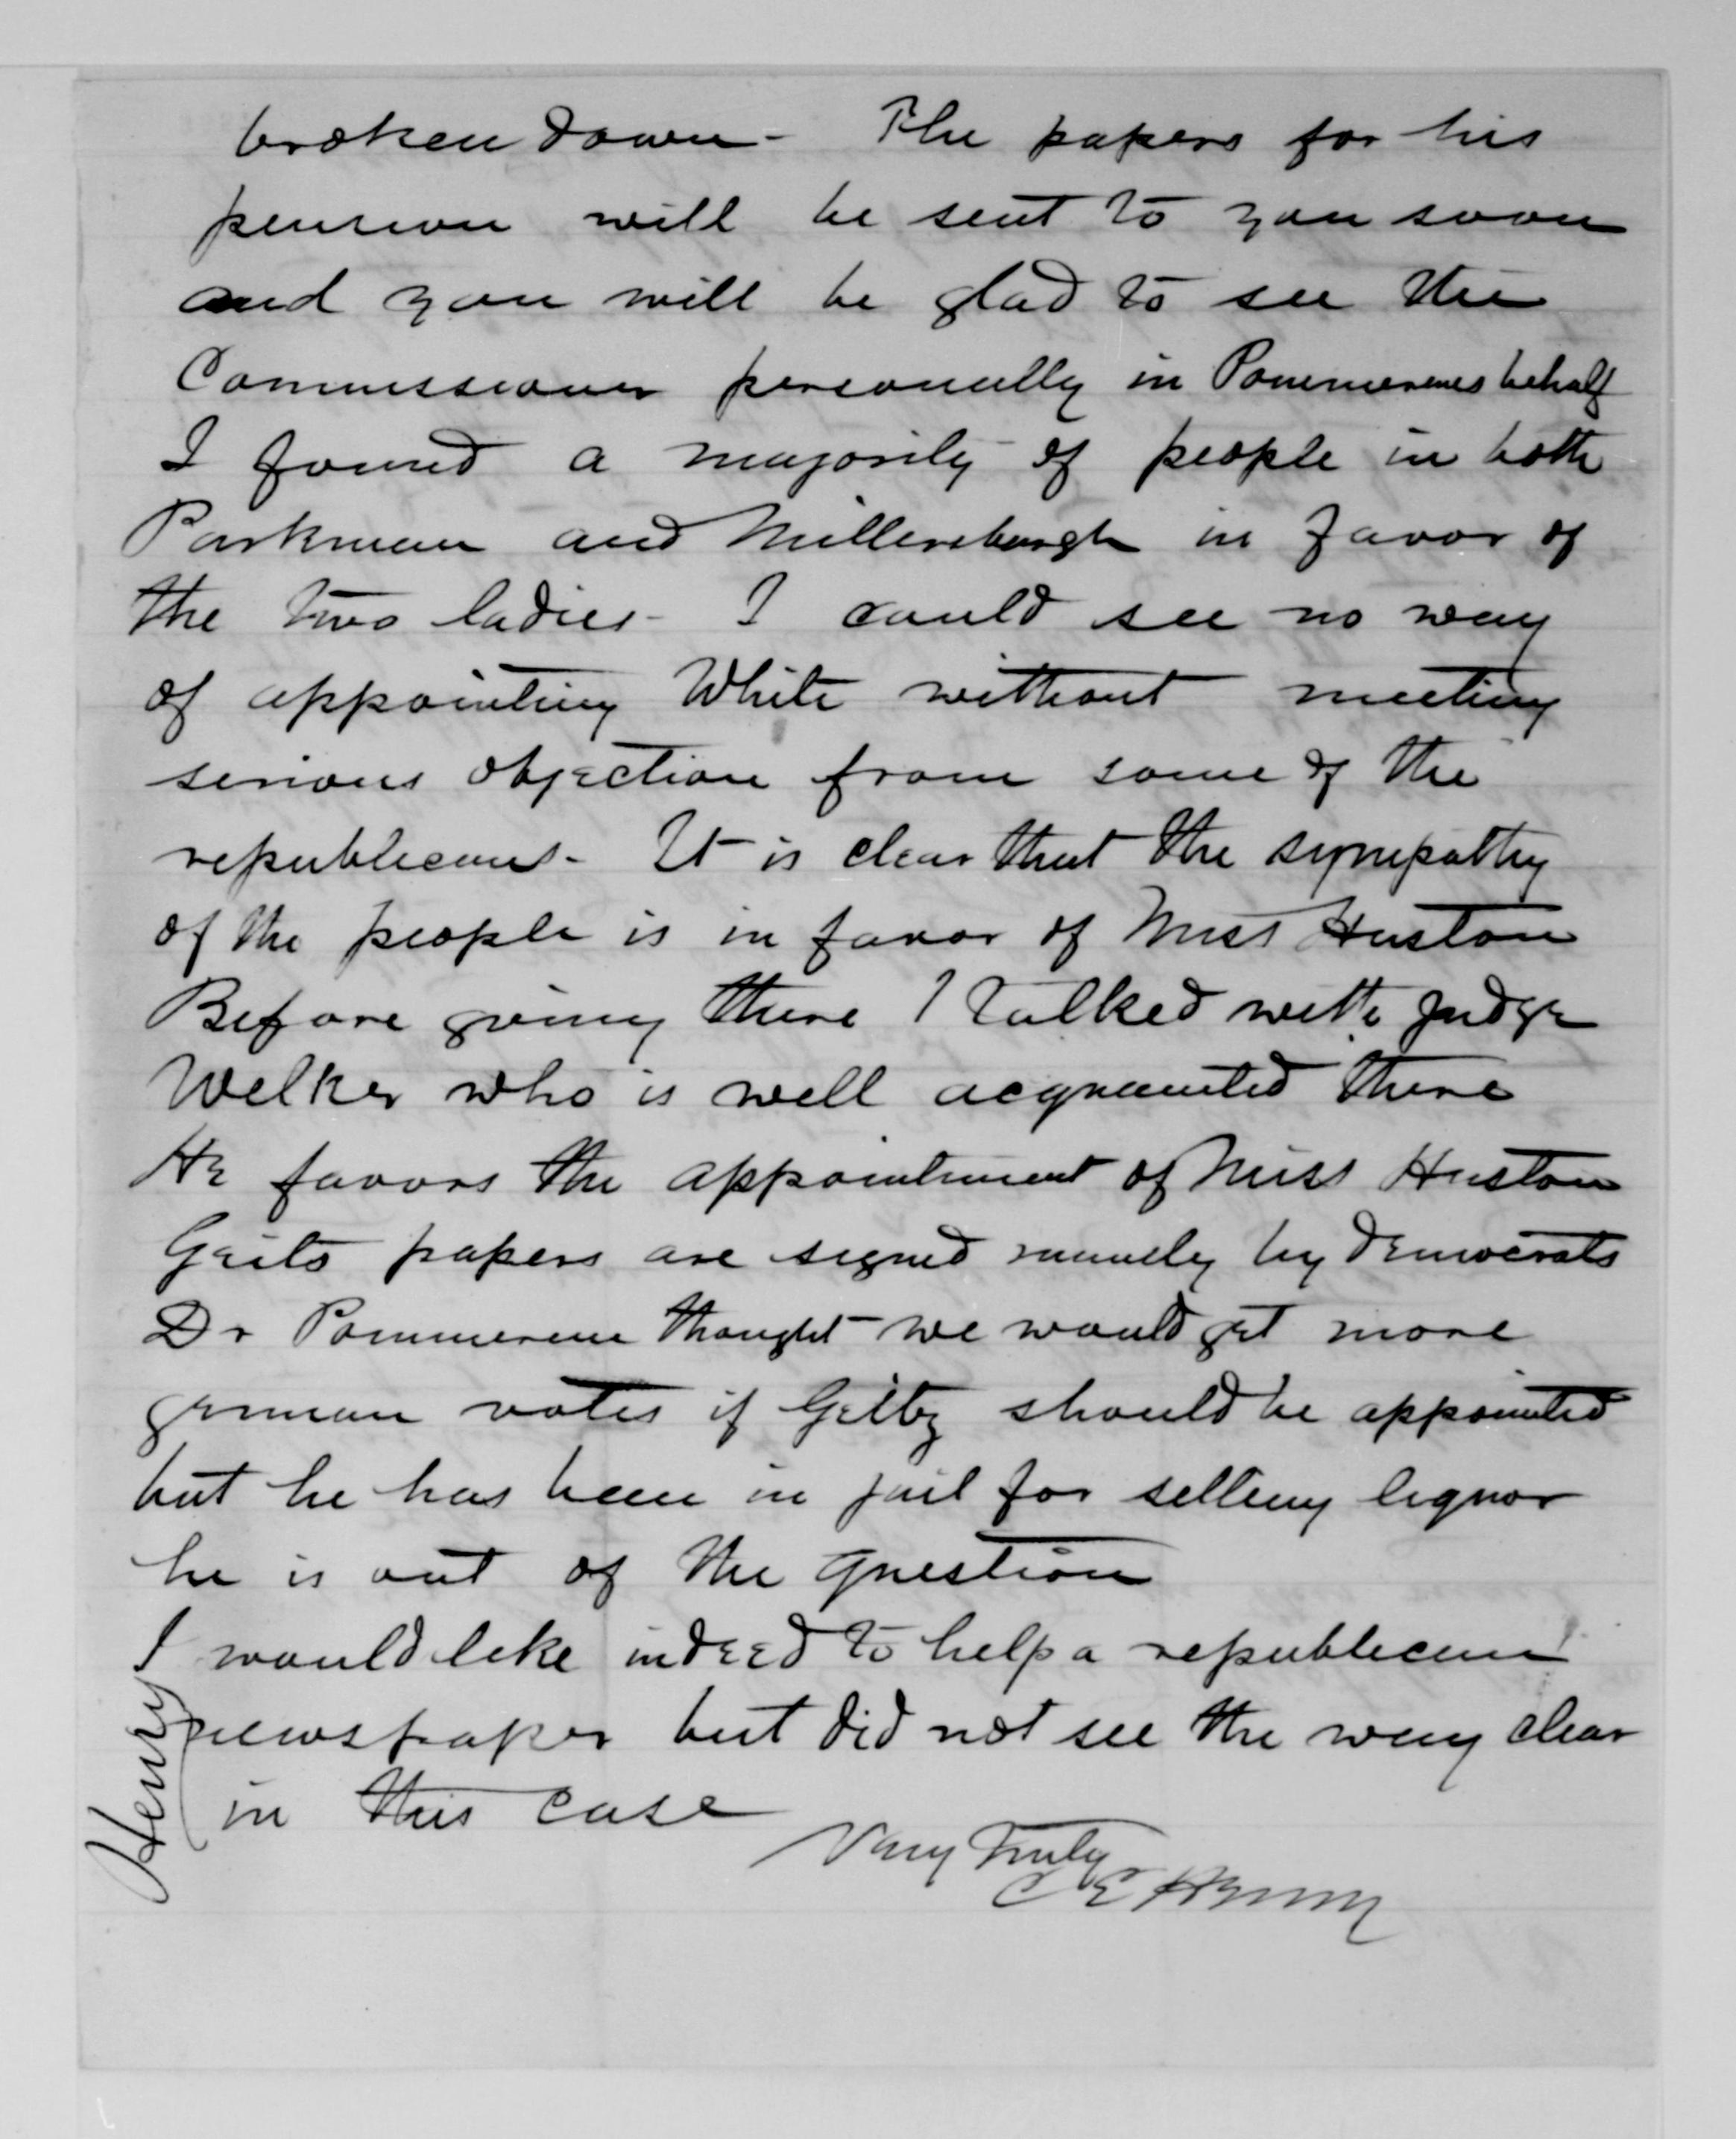 broken down - The papers for his
pension will be sent to you soon
and you will be glad to see the
Commissioner personally in Pommerenes behalf
I found a majority of people in both
Parkman and Millersburgh in favor of
the two ladies - I could see no way
of appointing White without meeting
serious objection from some of the
republicans - It is clear that the sympathy
of the people is in favor of Miss Huston
Before going there I talked with Judge
Welker who is well acquainted there
He favors the appointment of Miss Huston
papers are signed mainly by democrats
Dr Pommerene thought we would get more
german votes if should be appointed
but he has been in jail for selling liquor
he is out of the question
I would like indeed to help a republican
newspaper but did not see the way clear
in this case
Very Truly
C E Henry
Henry